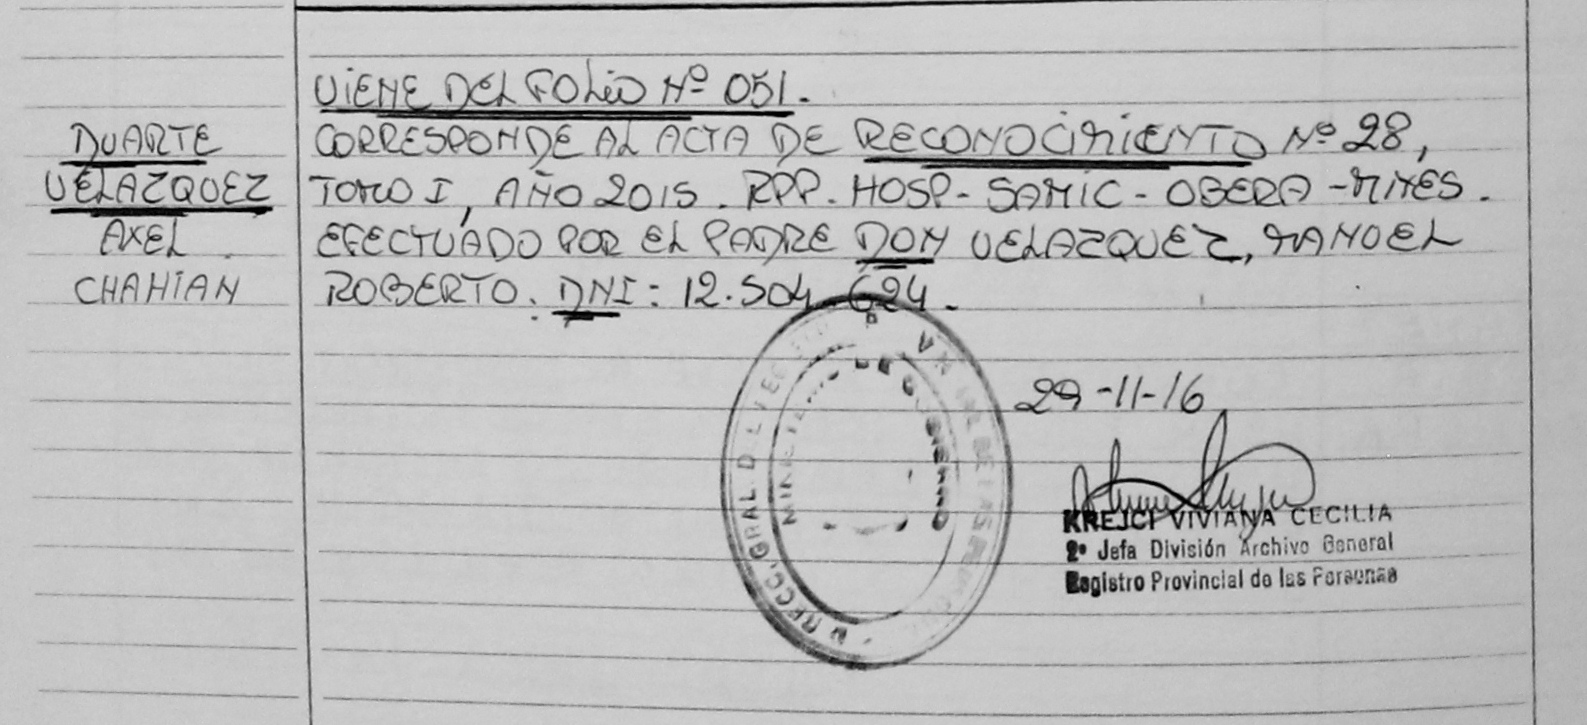 DUARTE
VELAZQUEZ
AXEL
CHAHIAN
VIENE DEL FOLIO Nº 051.
CORRESPONDE AL ACTA DE RECONOCIMIENTO Nº 28,
TOMO I, AÑO 2015. RPP. HOSP- SAMIC - OBERA - MNES.
EFECTUADO POR EL PADRE DON VELAZQUEZ, MANOEL
ROBERTO. DNI: 12.504.624.
29-11-16
KREJCI VIVIANA CECILIA
2º Jefa División Archivo General
Registro Provincial de las Personas
MINISTERIO DE GOBIERNO